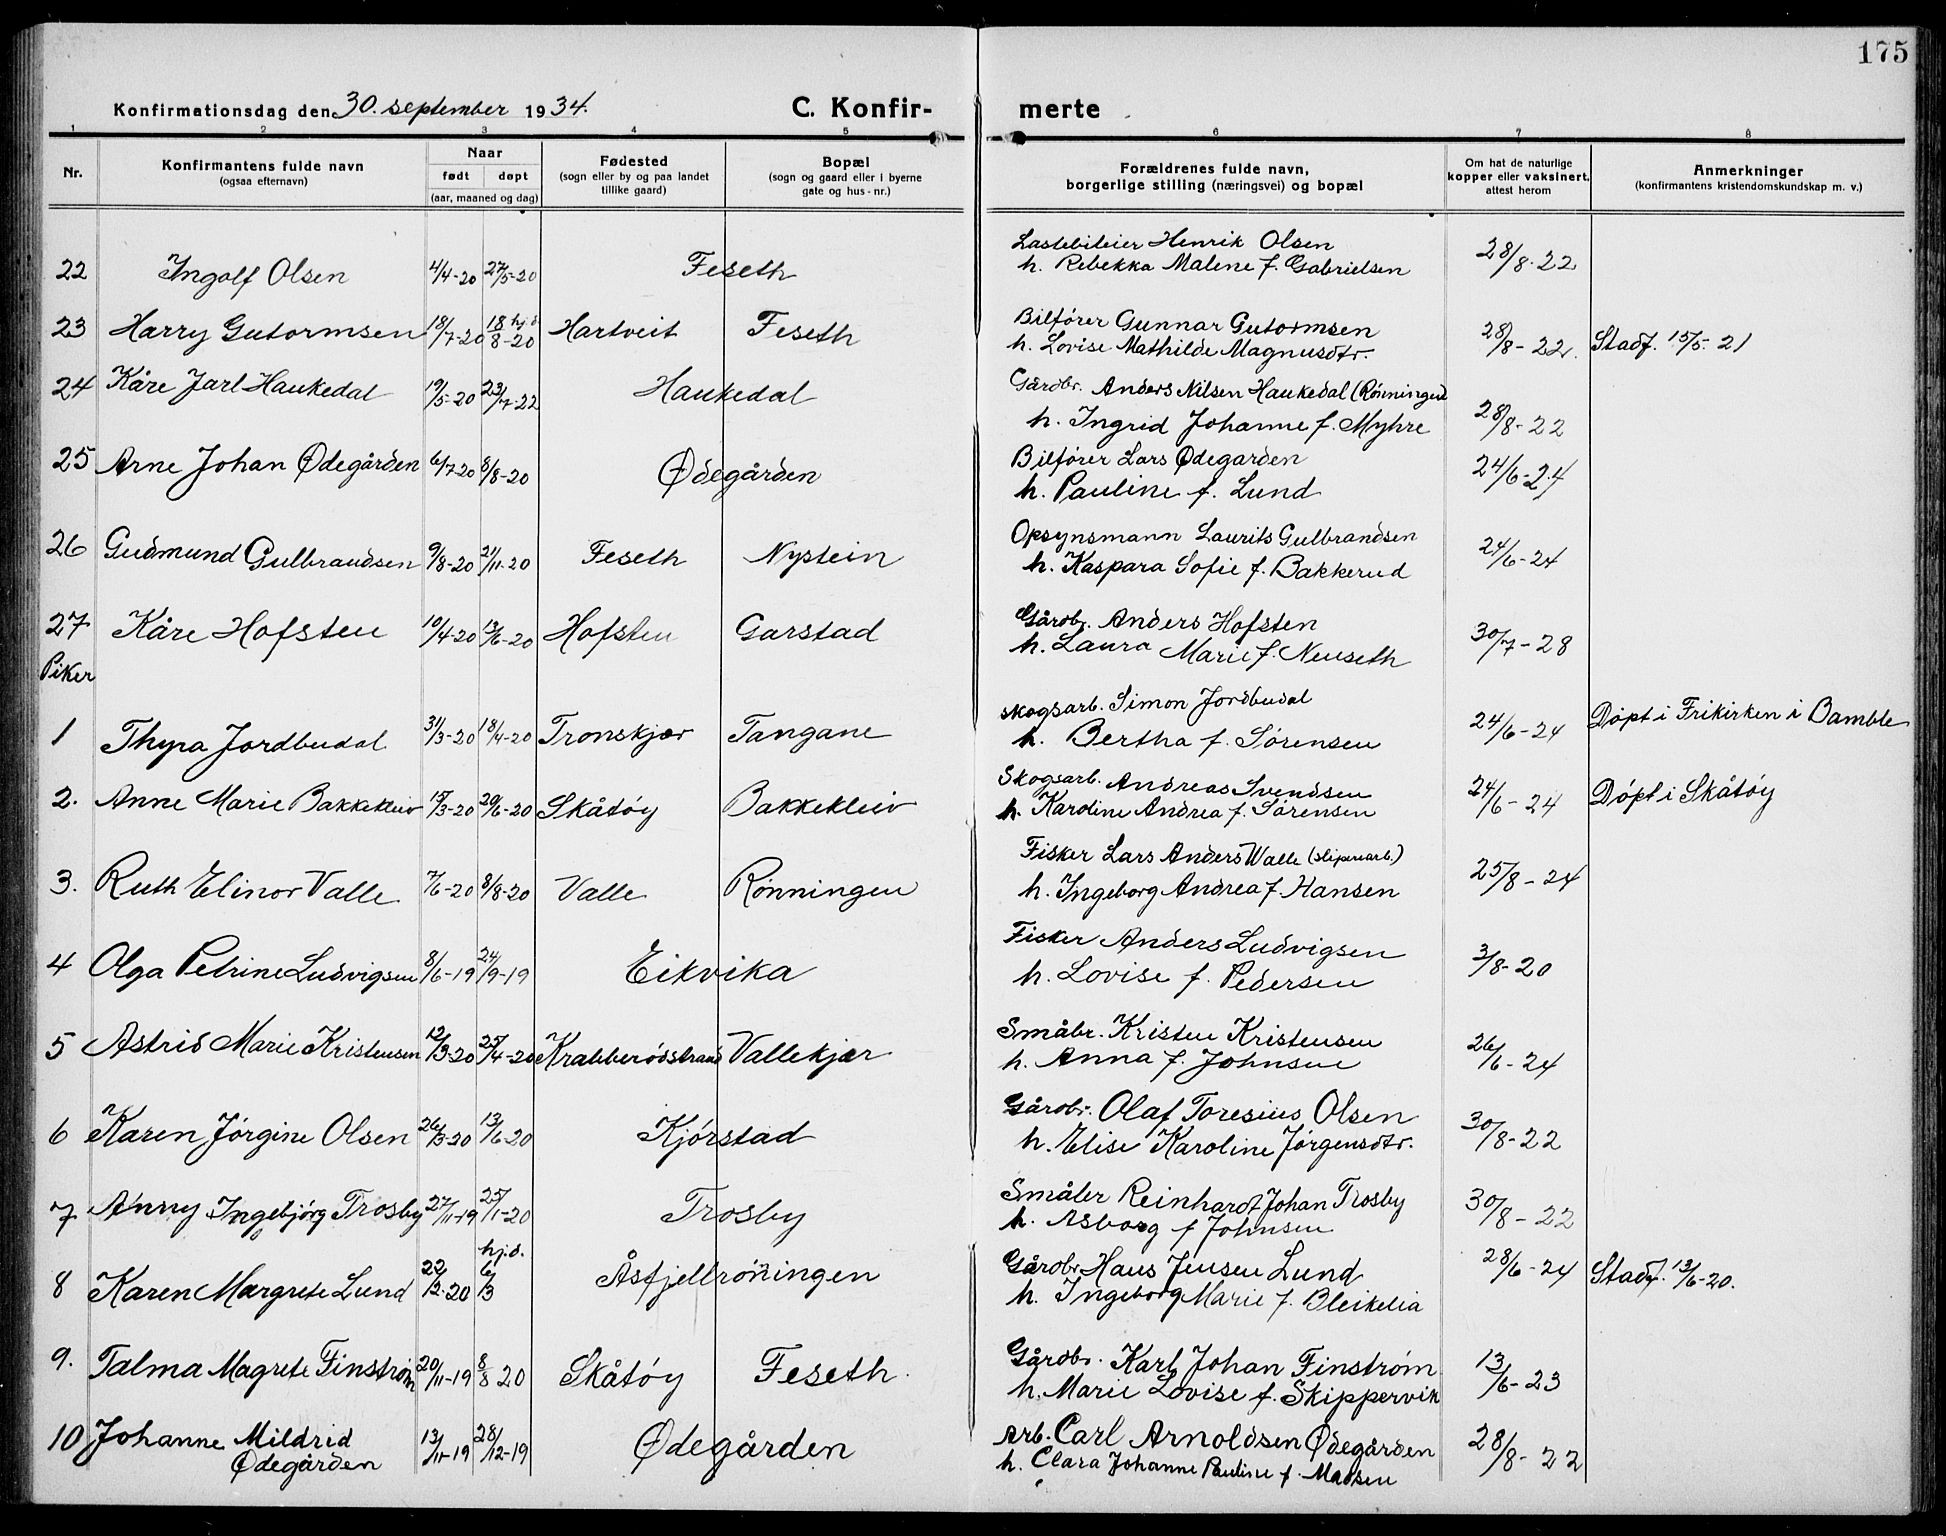 175
Konfirmationsdag den 30. september 1934.
C. Konfir-
merte
1 2 3 4 5 6 7 8
Nr.
Konfirmantens fulde navn
(ogsaa efternavn)
Naar
født døpt
(aar, maaned og dag)
Fødested
(sogn eller by og paa landet
tillike gaard)
Bopæl
(sogn og gaard eller i byerne
gate og hus-nr.)
Forældrenes fulde navn,
borgerlige stilling (næringsvei) og bopæl
Om hat de naturlige
kopper eller vaksinert,
attest herom
Anmerkninger
(konfirmantens kristendomskundskap m. v.)
22 Ingolf Olsen 4/4-20 27/5-20 Feseth
Lastebileier Henrik Olsen
h. Rebekka Malene f. Gabrielsen 28/8-22
23 Harry Gutormsen 18/7-20 18/8-20 hj.d. Hartveit Feseth
Bilfører Gunnar Gutormsen
h. Lovise Mathilde Magnusdtr. 28/8-22. Stadf. 15/5-21
24 Kåre Jarl Haukedal 19/5-20 23/7-22 Haukedal
Gårdbr. Anders Nilsen Haukedal (Rønningen)
h. Ingrid Johanne f. Myhre 28/8-22
25 Arne Johan Ødegården 6/7-20 8/8-20 Ødegården
Bilfører Lars Ødegarden
h. Pauline f. Lund 24/6-24
26 Gudmund Gulbrandsen 9/8-20 21/11-20 Feseth Nystein
Opsynsmann Laurits Gulbrandsen
h. Kaspara Sofie f. Bakkerud 24/6-24
27 Kåre Hofsten 10/4-20 13/6-20 Hofsten Garstad
Gårdbr. Anders Hofsten
h. Laura Marie f. Neuseth 30/7-28
Piker
1 Thyra Jordbudal 31/3-20 18/4-20 Tronskjær Tangane
Skogsarb. Simon Jordbudal
h. Bertha f. Sørensen 24/6-24 Døpt i Frikirken i Bamble
2. Anne Marie Bakkekleiv 15/3-20 20/6-20 Skåtøy Bakkekleiv
Skogsarb. Andreas Svendsen
h. Karoline Andrea f. Sørensen 24/6-24 Døpt i Skåtøy
3. Ruth Elinor Valle 7/6-20 8/8-20 Valle Rønningen
Fisker Lars Anders Walle (sliperiarb.)
h. Ingeborg Andrea f. Hansen 25/8-24
4 Olga Petrine Ludvigsen 8/6-19 24/9-19 Eikvika
Fisker Anders Ludvigsen
h. Lovise f. Pedersen 3/8-20
5 Astrid Marie Kristensen 12/3-20 25/4-20 Krabberødstrand Vallekjær
Småbr. Kristen Kristensen
h. Anna f. Johnsen 26/6-24
6 Karen Jørgine Olsen 26/3-20 13/6-20 Kjørstad
Gårdbr. Olaf Toresius Olsen
h. Elise Karoline Jørgensdtr. 30/8-22
7 Anny Ingebjørg Trosby 27/11-19 25/1-20 Trosby
Småbr Reinhardt Johan Trosby
h. Asborg f Johnsen 30/8-22
8 Karen Margrete Lund 22/12-20 hj.d. 6/3 Åsfjellrøningen
Gårdbr Hans Jensen Lund
h. Ingeborg Marie f. Bleikelia 28/6-24 Stadf. 13/6-20.
9. Talma Magrete Finstrøm 20/11-19 8/8 20 Skåtøy Feseth.
Gårdbr. Karl Johan Finstrøm
h. Marie Lovise f. Skippervik 13/6-23
10 Johanne Mildrid
Ødegården 13/11-19 28/12-19 Ødegården
Arb. Carl Arnoldsen Ødegården
h. Clara Johanne Pauline f. Madsen 28/8-22